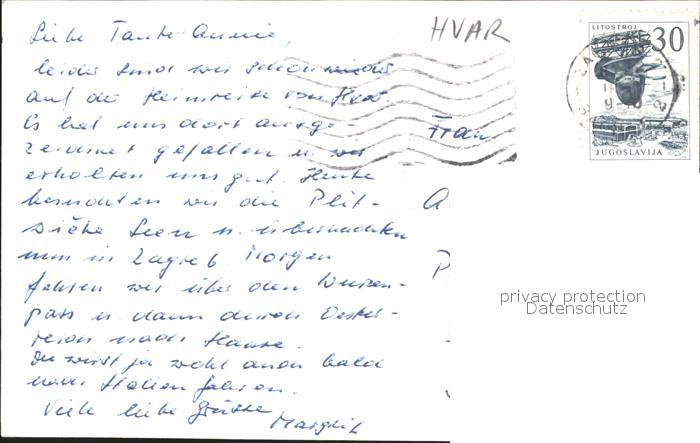 HVAR
LITOSTROJ
30
JUGOSLAVIJA
Liebe Tante Annie,
leider sind wir schon wieder
auf der Heimreise von Hvar.
Es hat uns dort ausge-
zeichnet gefallen u. wir
erholten uns gut. Heute
besuchten wir die Plit-
witzer Seen u. übernachten
nun in Zagreb. Morgen
fahren wir über den Wurzen-
pass u. dann durch Öster-
reich nach Hause.
Du wirst ja wohl auch bald
nach Italien fahren.
Viele liebe Grüsse,
Margrit
Frau
A.
P
privacy protection
Datenschutz